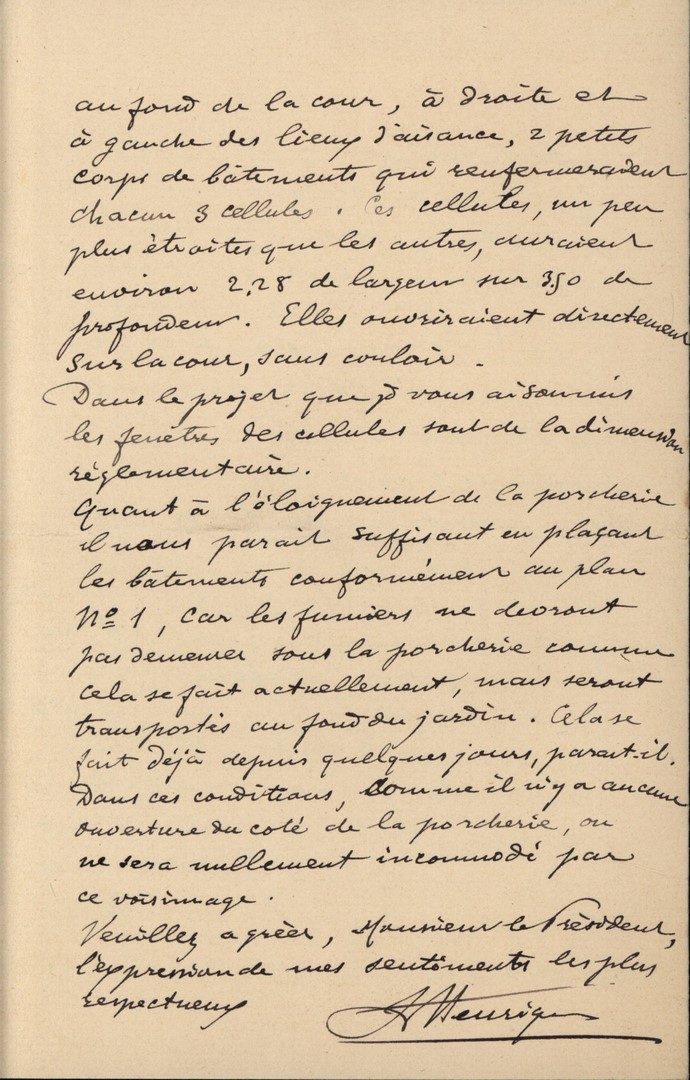 au fond de la cour, à droite et
à gauche des lieux d'aisance, 2 petits
corps de bâtiments qui renfermeraient
chacun 3 cellules. Ces cellules, un peu
plus étroites que les autres, auraient
environ 2,28 de largeur sur 3,50 de
profondeur. Elles ouvriraient directement
sur la cour, sans couloir.
Dans le projet que j'
les fenêtres des cellules sont de la dimension
réglementaire.
Quant à l'éloignement de la porcherie
il nous parait suffisant en plaçant
les bâtiments conformément au plan
No 1, car les fumiers ne devront
pas demeurer sous la porcherie comme
cela se fait actuellement, mais seront
transportés au fond du jardin. Cela se
fait déjà depuis quelques jours, parait-il.
Dans ces conditions, comme il n'y a aucune
ouverture du coté de la porcherie, on
ne sera nullement incommodé par
ce voisinage.
Veuillez agréer, Monsieur le Président,
l'expression de mes sentiments les plus
respectueux